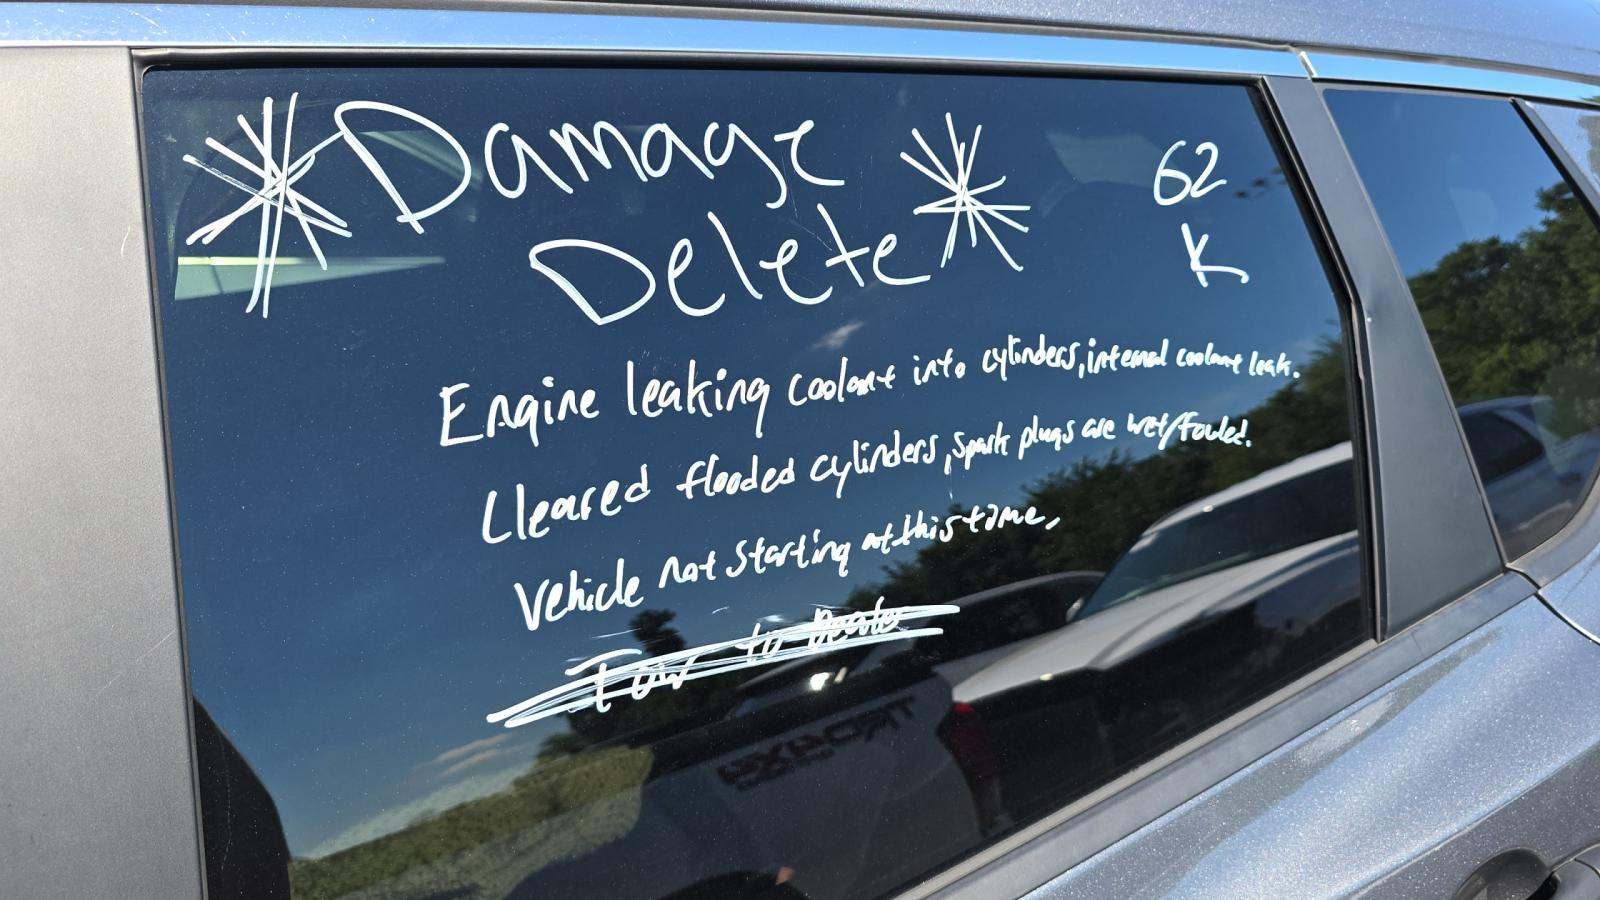 * Damage
Delete *
62
K
Engine leaking coolant into cylinders, internal coolant leak.
Cleared flooded cylinders, spark plugs are wet/fouled.
Vehicle not starting at this time,
Tow to Dealer